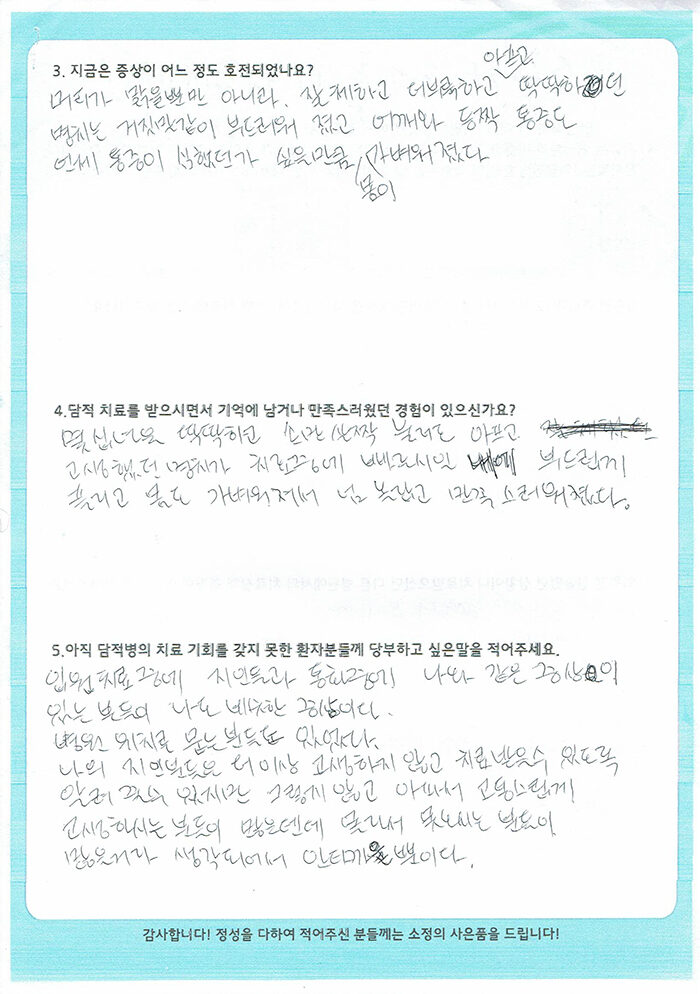 3. 지금은 증상이 어느 정도 호전되었나요?
머리가 맑을뿐만 아니라. 잘 체하고 더부룩하고 아프고 딱딱하던
명치는 거짓말같이 부드러워 졌고 어깨와 등짝 통증도
언제 통증이 심했던가 싶을만큼 몸이 가벼워 졌다
4.담적 치료를 받으시면서 기억에 남거나 만족스러웠던 경험이 있으신가요?
몇십년을 딱딱하고 손만 살짝 눌러도 아프고
고생했던 명치가 치료중에 빠른시일 부드럽게
풀리고 몸도 가벼워져서 넘 놀랍고 만족 스러워졌다.
5.아직 담적병의 치료 기회를 갖지 못한 환자분들께 당부하고 싶은말을 적어주세요.
입원치료중에 지인들과 통화중에 나와 같은 증상이
있는 분들이 나도 비슷한 증상이다.
병원 위치를 묻는분들도 있었다.
나의 지인분들은 더이상 고생하지 않고 치료받을수 있도록
알려 줄수 있지만 그렇지 않고 아파서 고통스럽게
고생하시는 분들이 많을텐데 몰라서 못오시는 분들이
많을거라 생각되어서 안타까울뿐이다.
감사합니다! 정성을 다하여 적어주신 분들께는 소정의 사은품을 드립니다!